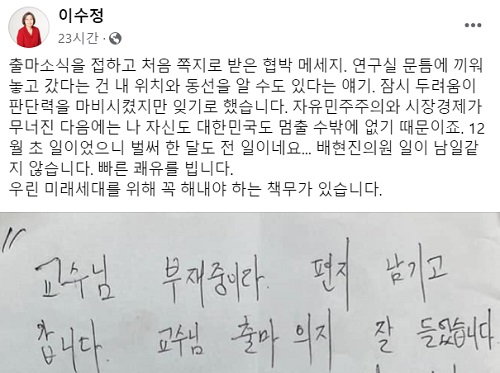 이수정
23시간 ·
출마소식을 접하고 처음 쪽지로 받은 협박 메세지. 연구실 문틈에 끼워
놓고 갔다는 건 내 위치와 동선을 알 수도 있다는 얘기. 잠시 두려움이
판단력을 마비시켰지만 잊기로 했습니다. 자유민주주의와 시장경제가
무너진 다음에는 나 자신도 대한민국도 멈출 수밖에 없기 때문이죠. 12
월 초 일이었으니 벌써 한 달도 전 일이네요... 배현진의원 일이 남일같
지 않습니다. 빠른 쾌유를 빕니다.
우린 미래세대를 위해 꼭 해내야 하는 책무가 있습니다.
교수님 부재중이라. 편지 남기고
갑니다. 교수님 출마 의지 잘 들었습니다.